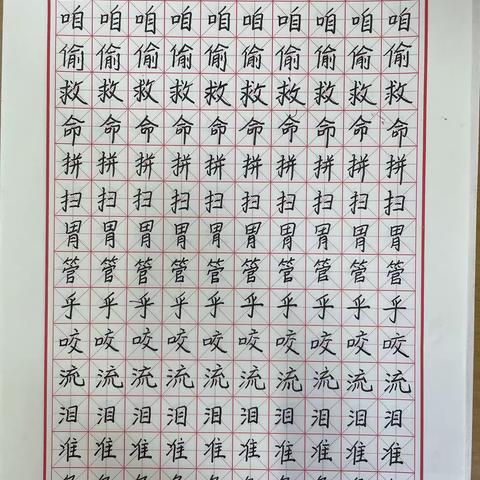 咱咱咱咱咱咱咱咱咱咱
偷偷偷偷偷偷偷偷偷偷
救救救救救救救救救救
命命命命命命命命命命
拼拼拼拼拼拼拼拼拼拼
扫扫扫扫扫扫扫扫扫扫
胃胃胃胃胃胃胃胃胃胃
管管管管管管管管管管
乎乎乎乎乎乎乎乎乎乎
咬咬咬咬咬咬咬咬咬咬
流流流流流流流流流流
泪泪泪泪泪泪泪泪泪泪
准准准准准准准准准准